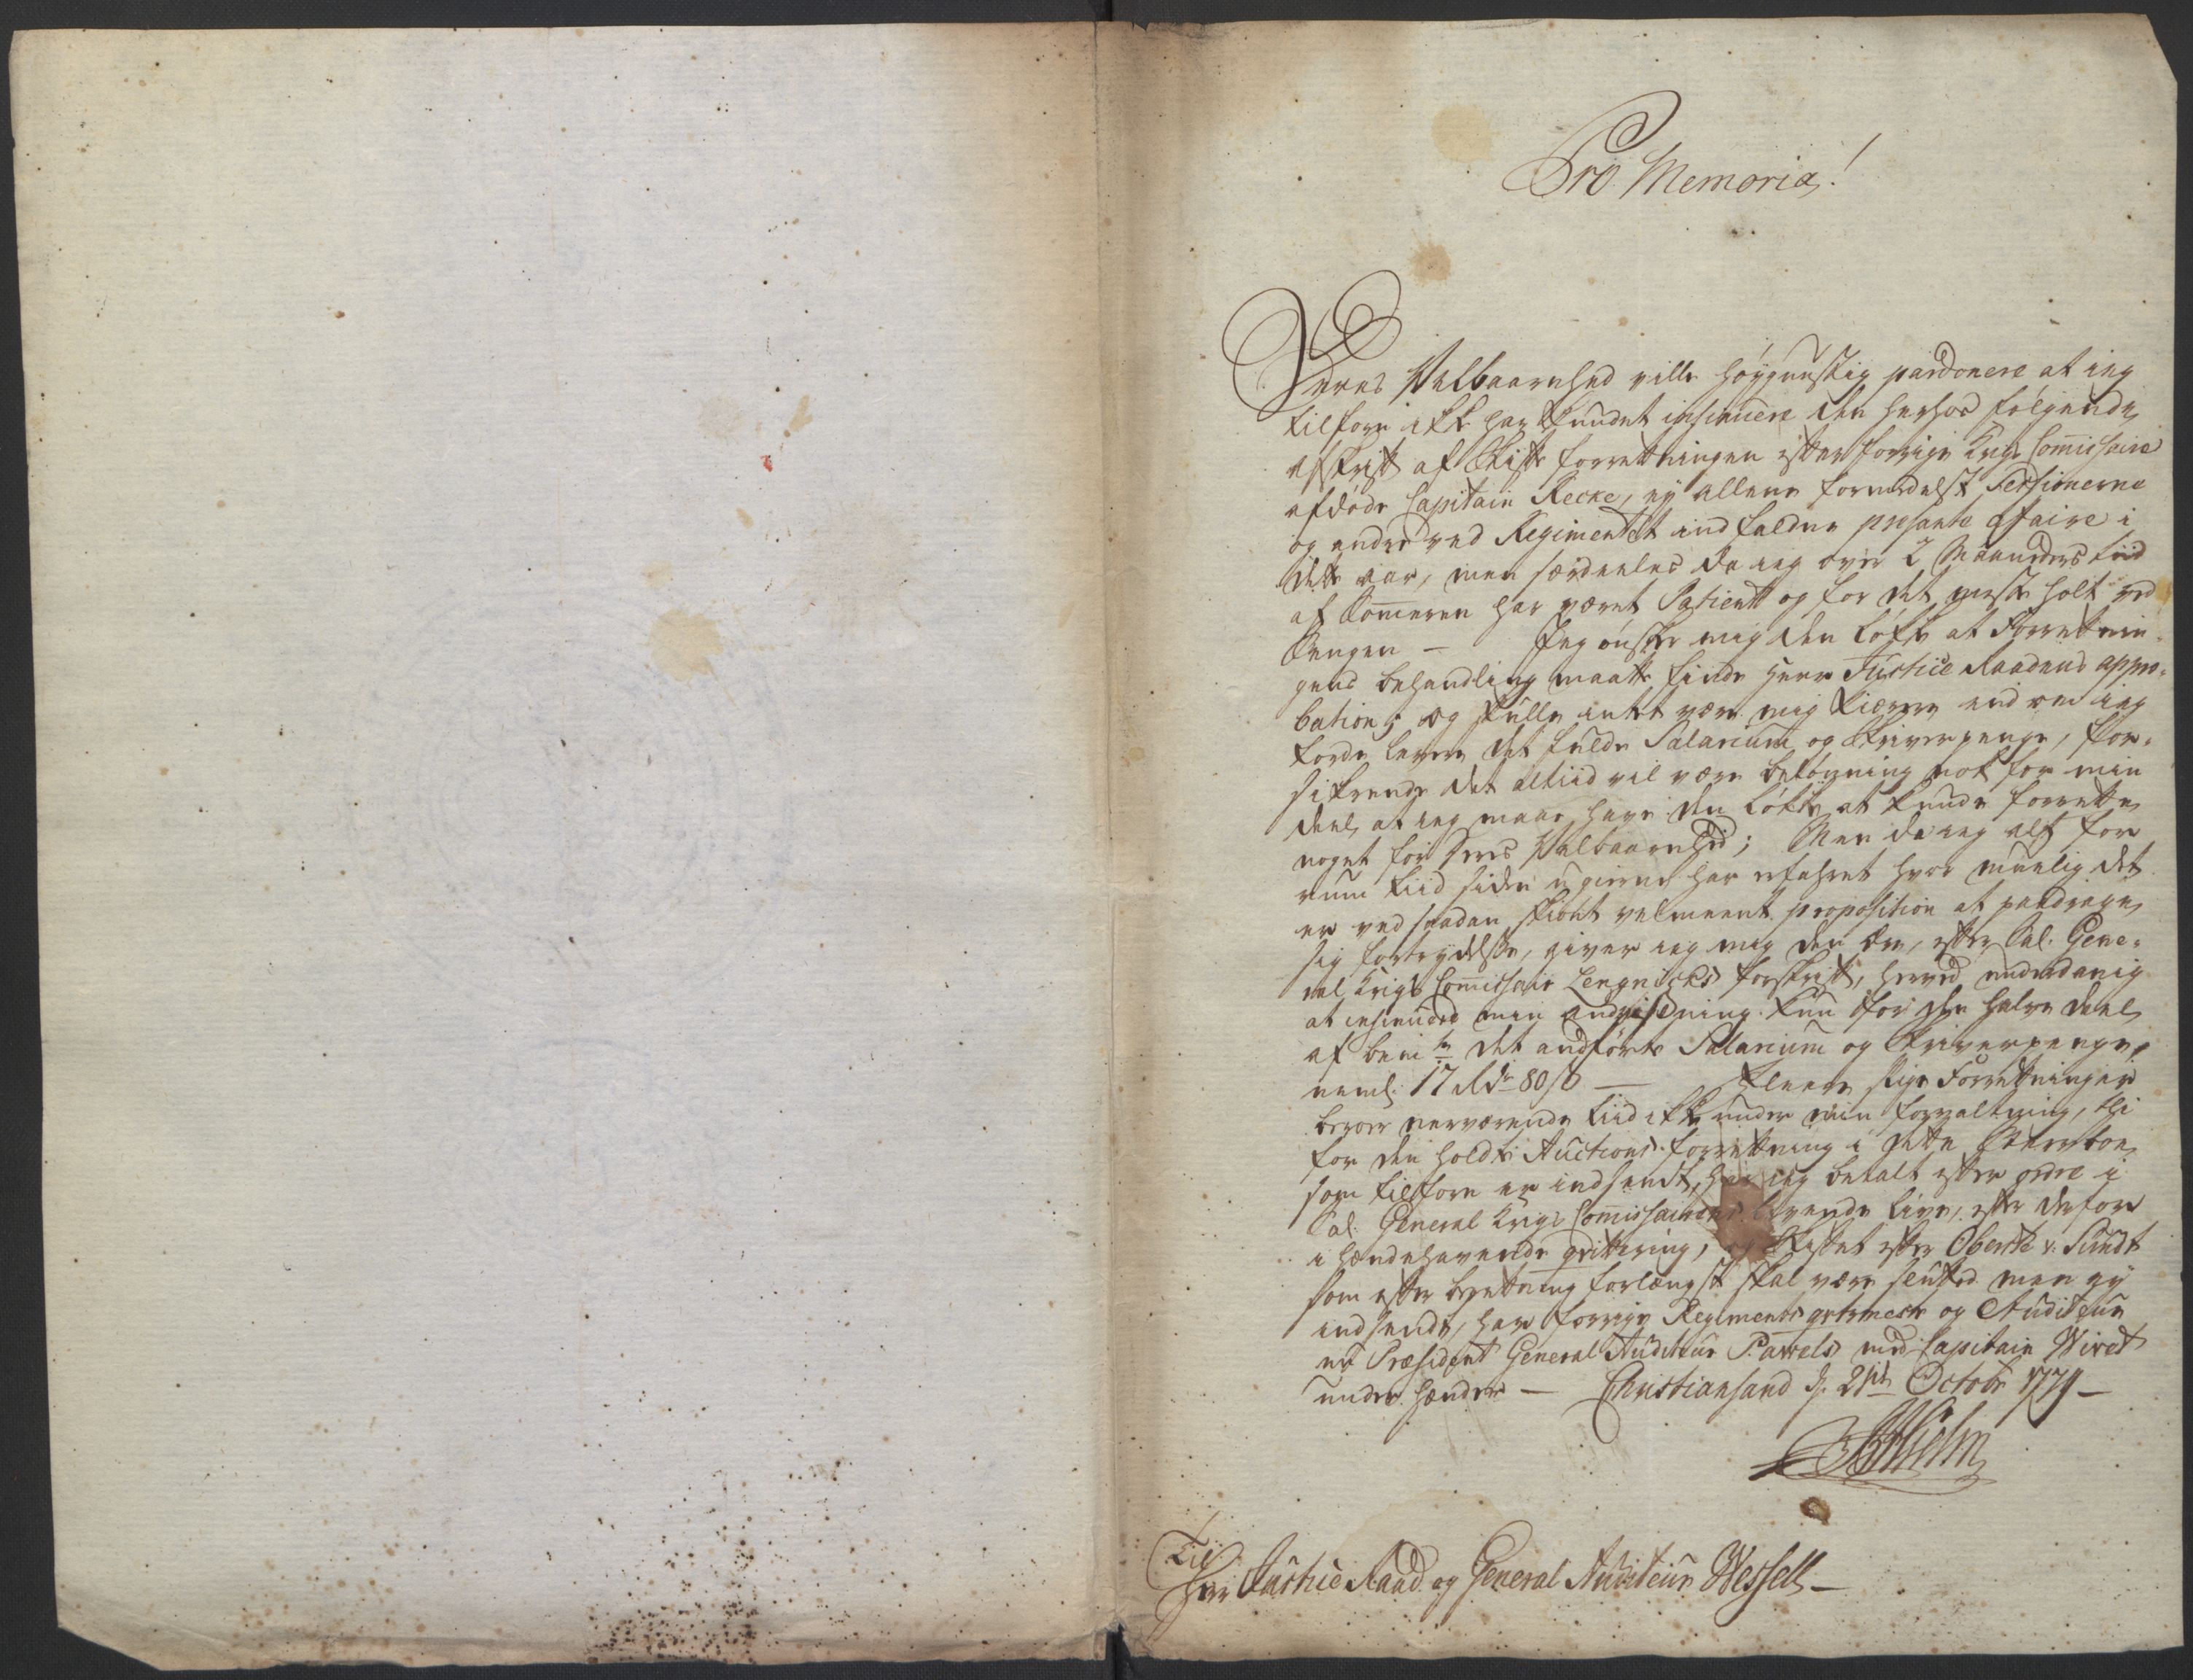 Pro Memoria!
Deres Velbaarnhed ville høygunstig pardonere at ieg
tilforn ikke har kundet insinuere den herhos følgende
afskrift af Skifte forretningen efter forrige Krigs Com̄issaire
afdøde Capitain Recke, ey allene formedelst Sessionerne
og andre ved Regimentet indfaldne presante affaire i
dette aar, men særdeeles da ieg over 2 Maaneders tiid
af Som̄eren har været Patient og for det meste holt ved
Sengen — Jeg ønsker mig den Løkke at Forretnin-
gens behandling maatte finde Herr Justice Raadens appro-
bation; og skulle intet være mig kierere end om ieg
torde levere det fulde Salarium og Skriverpenge, for-
sikrende det altiid vil være beløning nok for min
deel, at ieg maae have den Løkke at kunde forrette
noget for Deres Velbaarnhed; Men da ieg alt for
rum tiid siden ugierne har erfahret hvor muelig det
er ved saadan skiønt velmeent proposition at paadrage
sig fortrydelse, giver ieg mig den ære, efter Sal. Gene-
ral Krigs Com̄issair Lengnicks forskrift, herved underdanig
at insinuere min anviisning kun for den halve deel
af bem.te det andførte Salarium og Skriverpenge,
neml. 17 Rdr 80 s — Fleere slige Forretninger
beroer nerværende tiid ikke under min forvaltning, thi
for den holdte Auctions forretning i dette Sterboe
som tilforn er indsendt, har ieg betalt efter ordre i
Sal. General Krigs Com̄issairens levende Live, efter derfor
i hændehavende qvittering, og Skiftet efter Oberste v. Sundt
som efter beretning forlængst skal være slutted men ey
indsendt, har forrige Regiments qvrtmester og Auditeur
nu Præsident General Auditeur Pawels med Capitain Wiret
under hænder — Christiansand d. 21de Octobr 1779 —
Hielm
Til
Herr Justice Raad og General Auditeur Wessell —